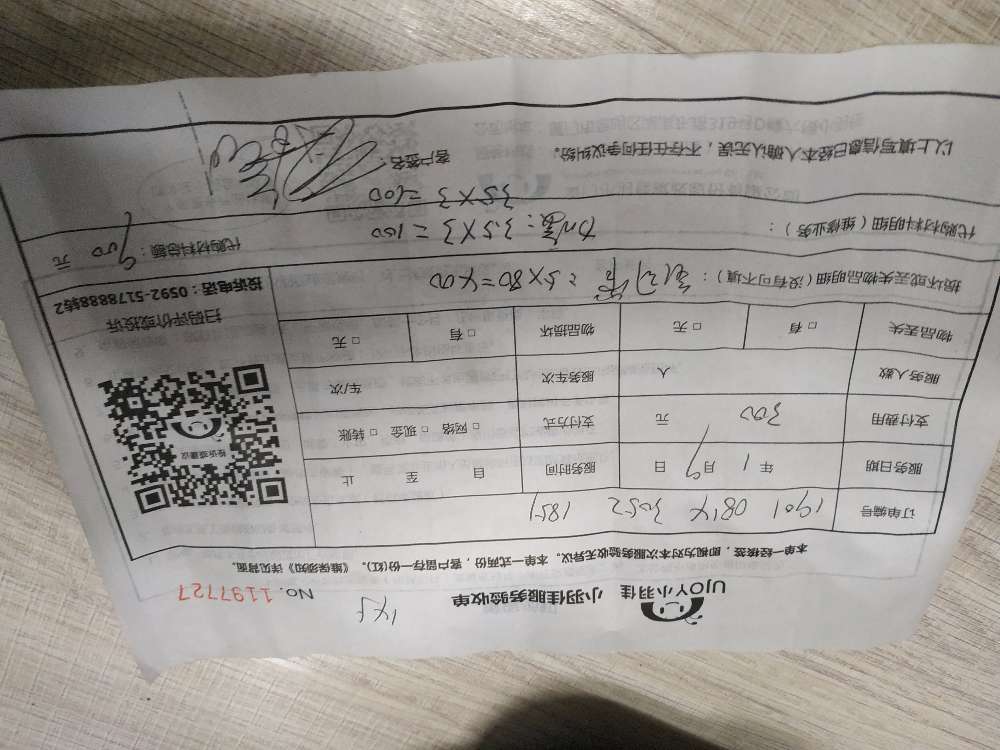 UJOY小羽佳 小羽佳服务验收单
No. 1197727
本单一经核签，即视为对本次服务验收无异议。本单一式两份，客户留存一份(红)。《维保须知》详见背面。
订单编号 1901 0814 3052 1851
服务日期 年 1 月 9 日 服务时间 自 至 止
支付费用 300 元 支付方式 □ 网络 □ 现金 □ 转账
服务人数 人 服务车次 车/次
物品丢失 □ 有 □ 无 物品损坏 □ 有 □ 无
投诉或建议
扫码评价或投诉
投诉电话：0592-5178888转2
损坏或丢失物品明细（没有可不填）： 5×80=400
代购材料明细（维修业务）： 加氟：3.5×3=100 代购材料总额： 900 元
35×3=100
以上填写信息已经本人确认无误，不存在任何争议纠纷。 客户签名：